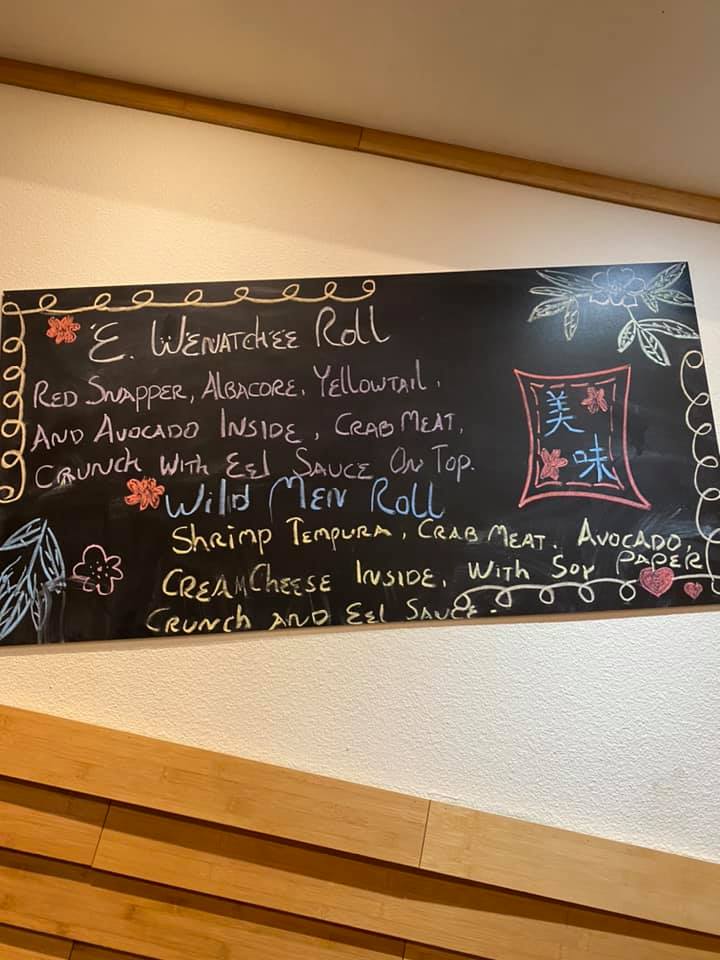 E. WENATCHEE ROLL
RED SNAPPER, ALBACORE, YELLOWTAIL,
AND AVOCADO INSIDE, CRAB MEAT,
CRUNCH WITH EEL SAUCE ON TOP.
WILD MEN ROLL
SHRIMP TEMPURA, CRAB MEAT. AVOCADO,
CREAMCHEESE INSIDE, WITH SOY PAPER
CRUNCH AND EEL SAUCE.
美
味